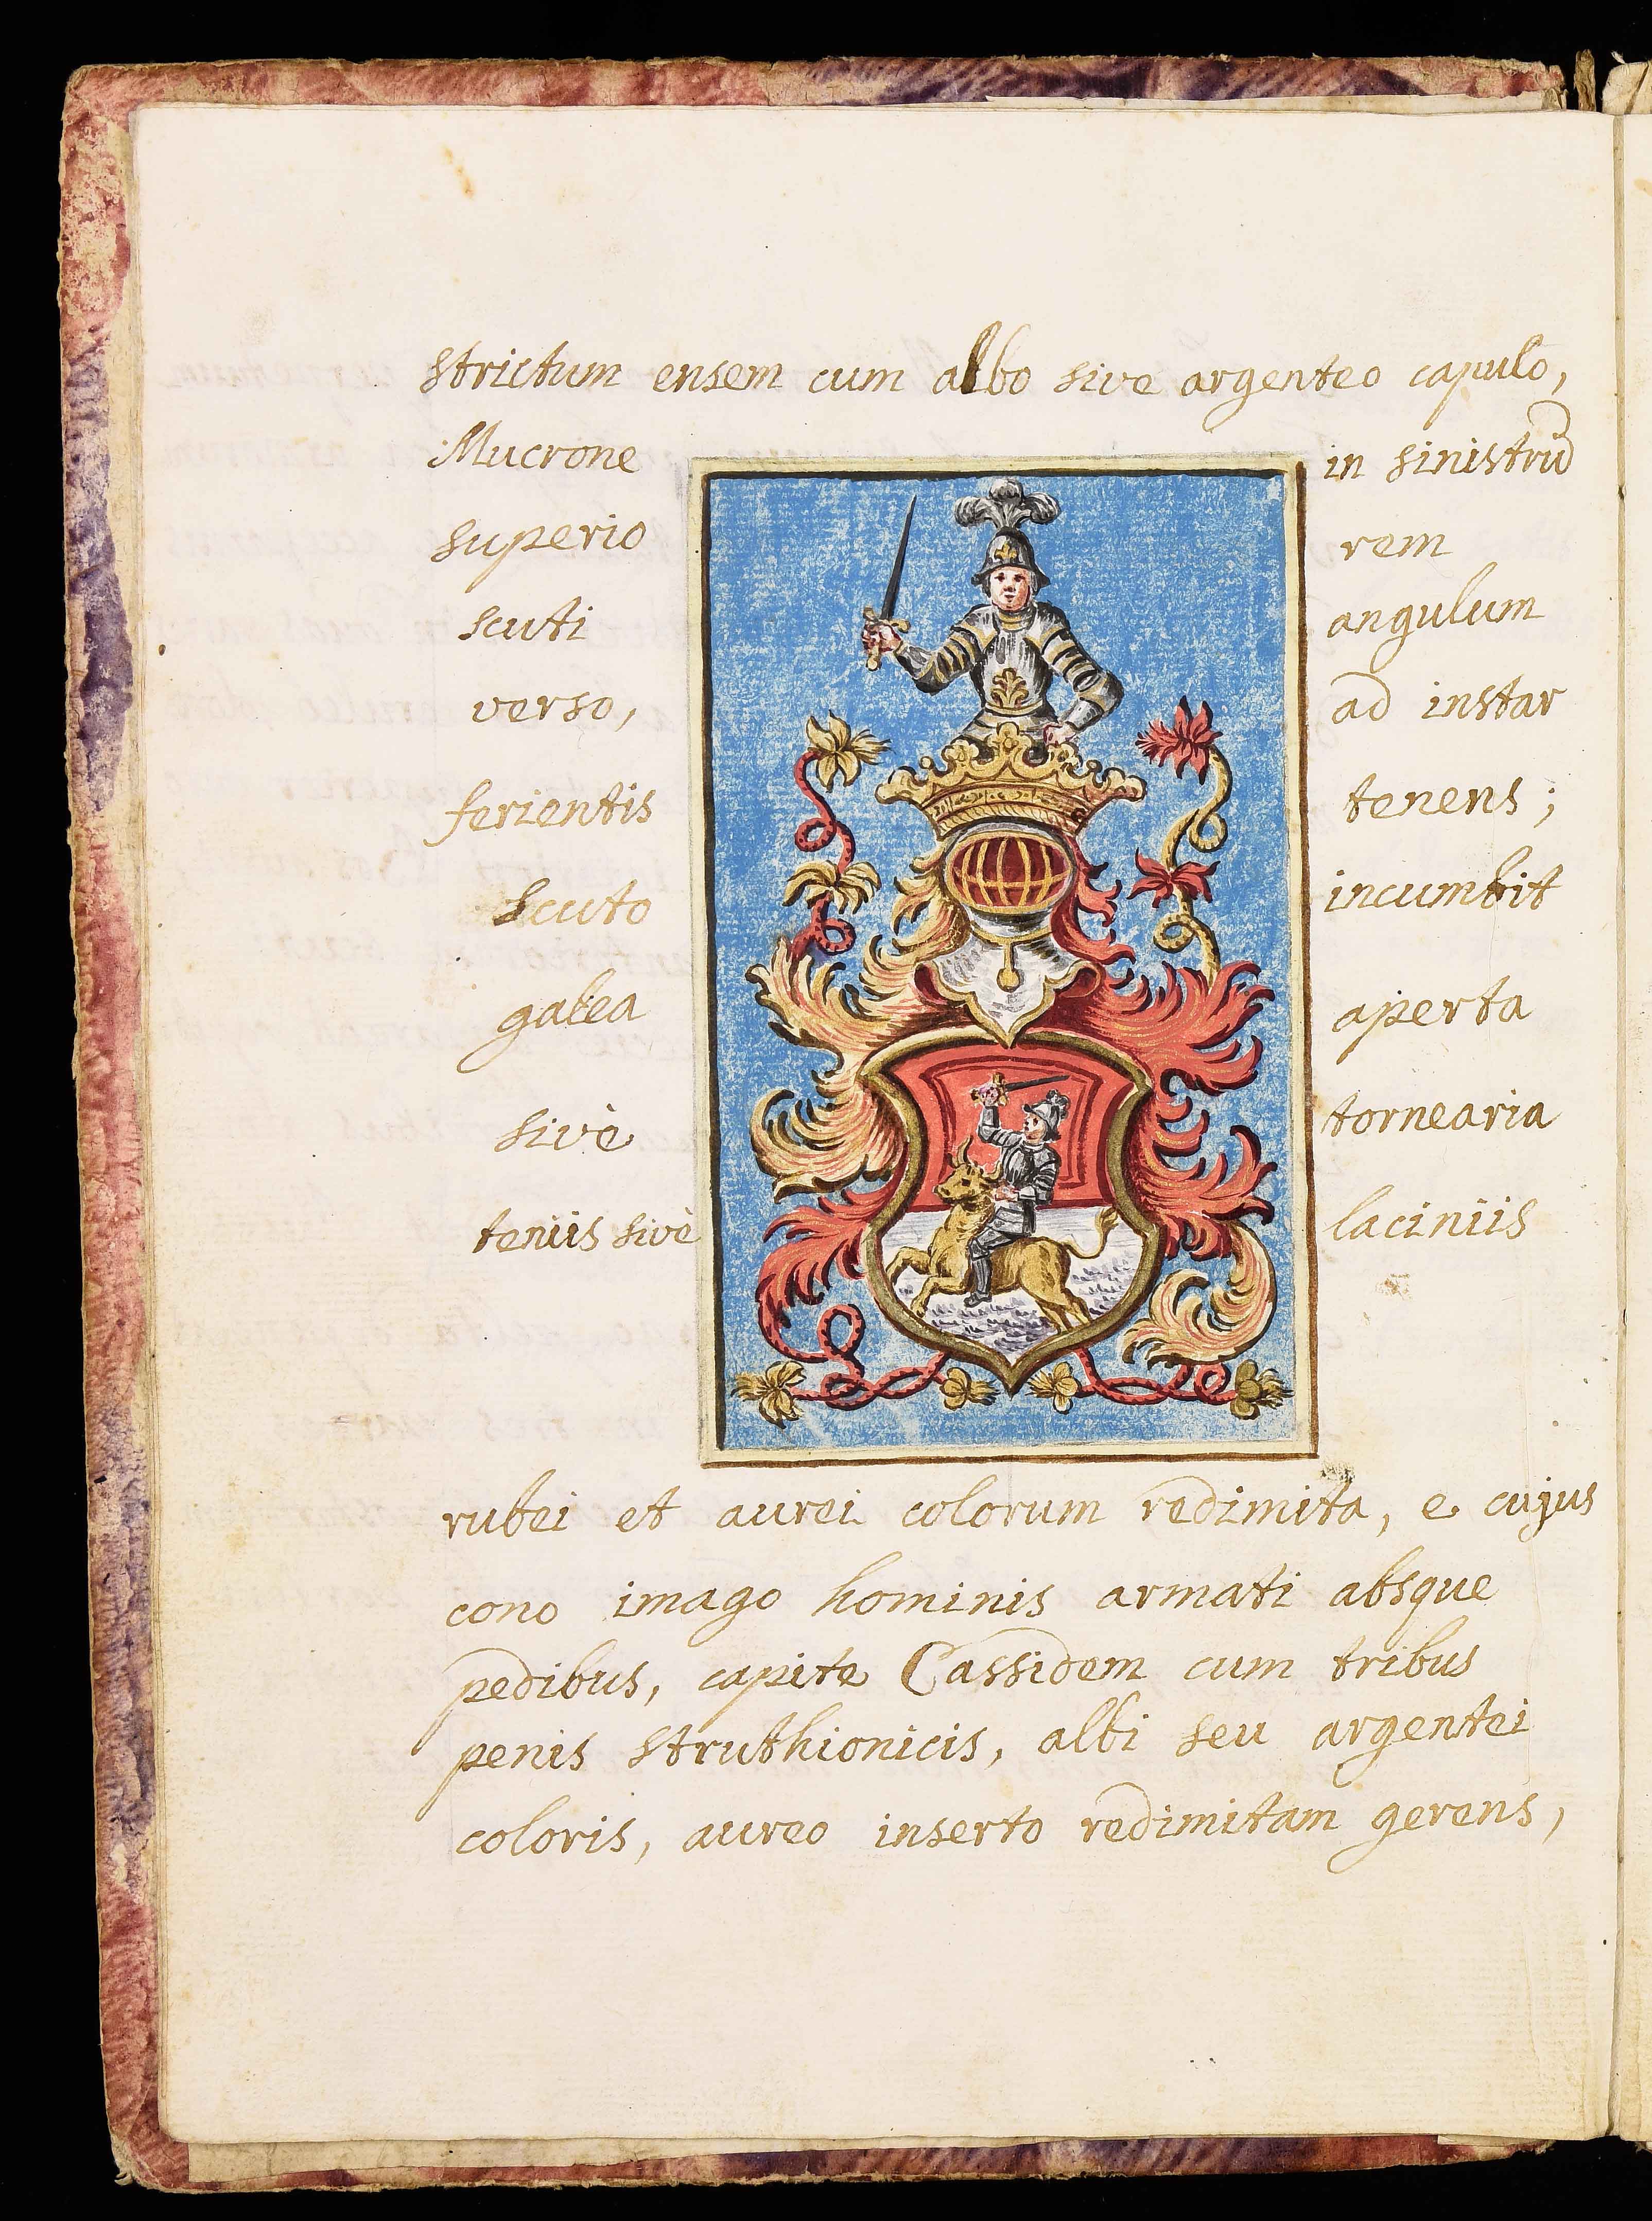 strictum ensem cum albo sive argenteo capulo,
Mucrone in sinistrū
superio rem
scuti angulum
verso, ad instar
ferientis tenens;
scuto incumbit
galea aperta
sivè tornearia
teniis sivè laciniis
rubei et aurei colorum redimita, e cujus
cono imago hominis armati absque
pedibus, capite Cassidem cum tribus
penis struthionicis, albi seu argentei
coloris, aureo inserto redimitam gerens,